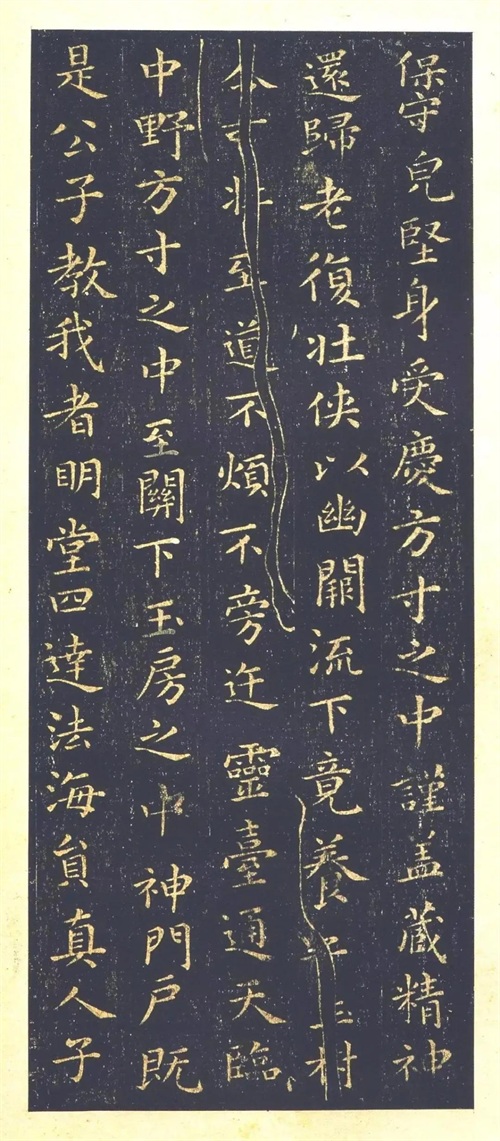 保守皃堅身受慶方寸之中謹盖藏精神
還歸老復壯侠以幽闕流下竟養子玉樹
令可壯至道不煩不旁迕靈臺通天臨
中野方寸之中至關下玉房之中神門戶既
是公子教我者眀堂四達法海員真人子